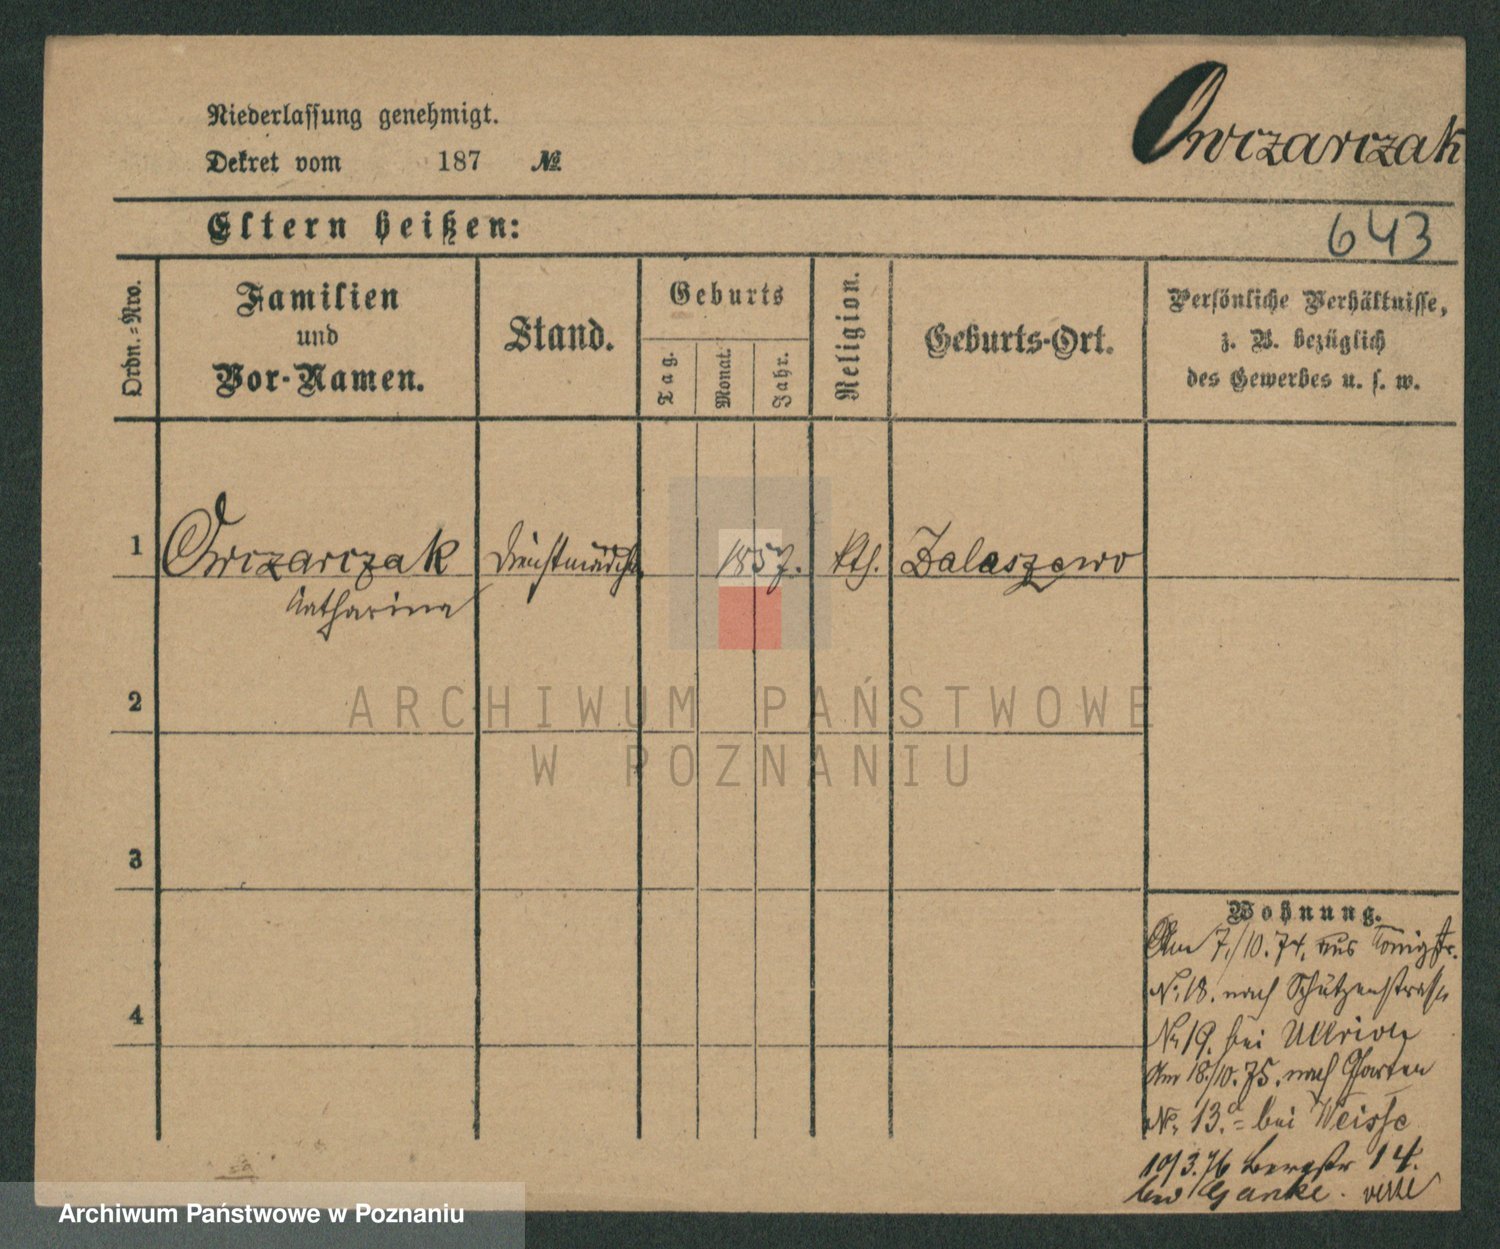 Owczarczak
Niederlassung genehmigt.
Dekret vom 187 №
Eltern heißen:
643
Ordn.=Nro.
Familien
und
Vor-Namen.
Stand.
Geburts
Tag.
Monat.
Jahr.
Religion.
Geburts-Ort.
Persönliche Verhältnisse,
z. B. bezüglich
des Gewerbes u. s. w.
1 Owczarczak Dienstmädchen 1857. kth. Zalaszewo
Catharina
2
3
4
Wohnung.
Am 7./10.74. aus Königstr.
No 18. nach Schützenstrasse
No 19. bei
Am 18./10.75. nach Garten
No. 13.a bei Weisse
10/3.76 Bergstr 14.
bei Ganke.
ARCHIWUM PAŃSTWOWE
W POZNANIU
Archiwum Państwowe w Poznaniu